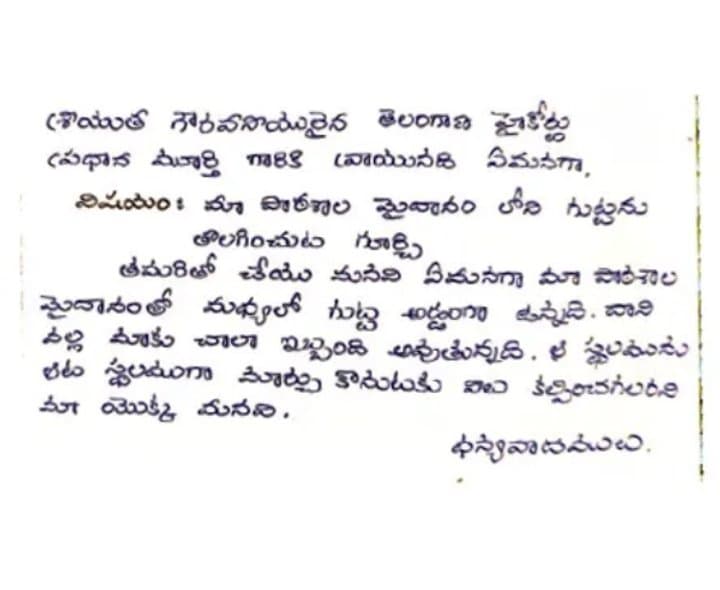 శ్రీయుత గౌరవనీయులైన తెలంగాణ హైకోర్టు
ప్రధాన మూర్తి గారికి వ్రాయునది ఏమనగా,
విషయం: మా పాఠశాల మైదానం లోని గుట్టను
తొలగించుట గూర్చి
తమరితో చేయు మనవి ఏమనగా మా పాఠశాల
మైదానంతో మధ్యలో గుట్ట అడ్డంగా ఉన్నది. దాని
వల్ల మాకు చాలా ఇబ్బంది అవుతున్నది. ఆ స్థలమును
ఆట స్థలముగా మార్చు కొనుటకు వీలు కల్పించగలరని
మా యొక్క మనవి.
ధన్యవాదములు.